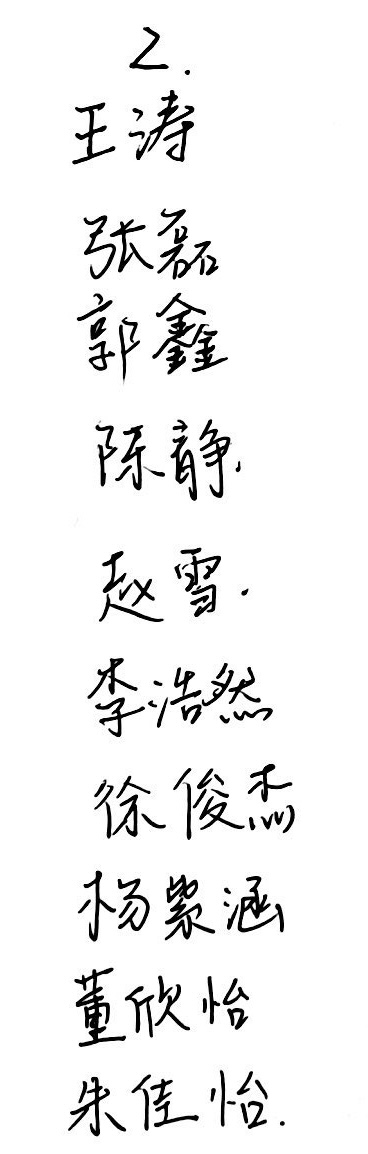 2.
王涛
张磊
郭鑫
陈静.
赵雪.
李浩然
徐俊杰
杨紫涵
董欣怡
朱佳怡.